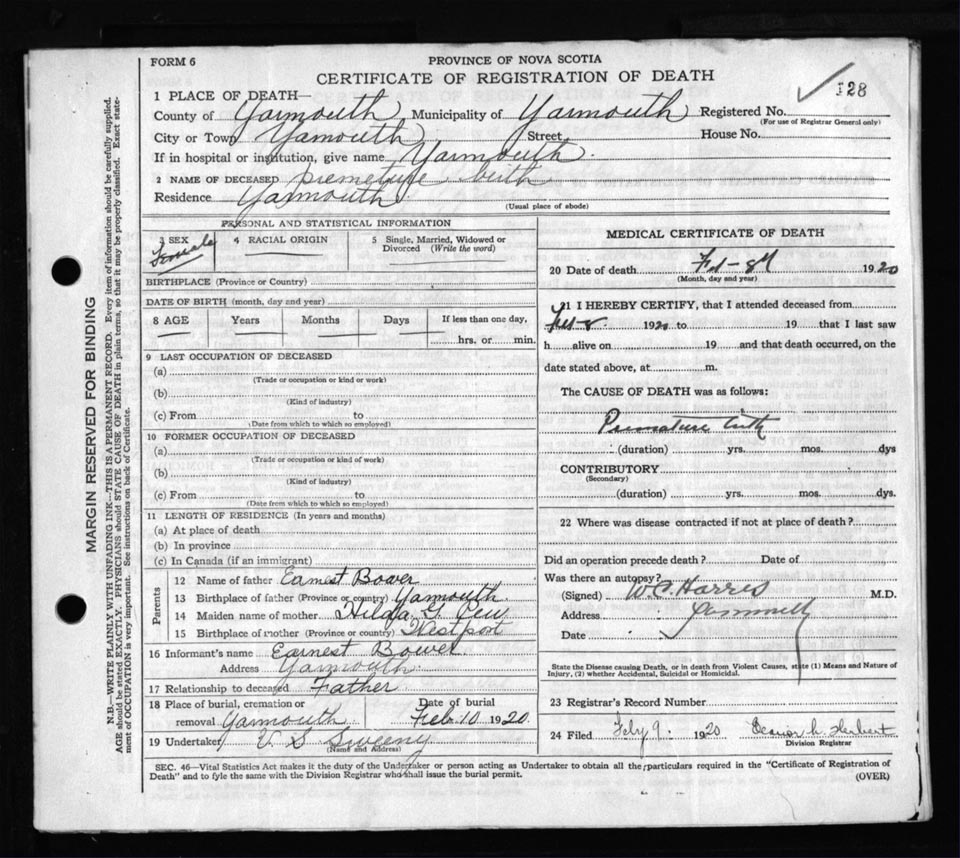 FORM 6
PROVINCE OF NOVA SCOTIA
CERTIFICATE OF REGISTRATION OF DEATH
128
1 PLACE OF DEATH—
County of Yarmouth Municipality of Yarmouth Registered No.
(For use of Registrar General only)
City or Town Yamouth Street House No.
If in hospital or institution, give name Yarmouth.
2 NAME OF DECEASED premeture birth
Residence Yarmouth
(Usual place of abode)
PERSONAL AND STATISTICAL INFORMATION
3 SEX Female 4 RACIAL ORIGIN 5 Single, Married, Widowed or Divorced (Write the word)
BIRTHPLACE (Province or Country)
DATE OF BIRTH (month, day and year)
8 AGE Years Months Days If less than one day,
hrs. or min.
9 LAST OCCUPATION OF DECEASED
(a)
(Trade or occupation or kind or work)
(b)
(Kind of industry)
(c) From to
(Date from which to which so employed)
10 FORMER OCCUPATION OF DECEASED
(a)
(Trade or occupation or kind of work)
(b)
(Kind of industry)
(c) From to
(Date from which to which so employed)
11 LENGTH OF RESIDENCE (In years and months)
(a) At place of death
(b) In province
(c) In Canada (if an immigrant)
Parents
12 Name of father Earnest Bower
13 Birthplace of father (Province or country) Yarmouth
14 Maiden name of mother Hilda G.
15 Birthplace of mother (Province or country) Westport
16 Informant's name Earnest Bower
Address Yarmouth
17 Relationship to deceased Father
18 Place of burial, cremation or Date of burial
removal Yarmouth Feb. 10 1920
19 Undertaker V S Sweeny
(Name and Address)
MEDICAL CERTIFICATE OF DEATH
20 Date of death Feb-8th 1920
(Month, day and year)
21 I HEREBY CERTIFY, that I attended deceased from
Feb 8 1920 to 19 that I last saw
h alive on 19 and that death occurred, on the
date stated above, at m.
The CAUSE OF DEATH was as follows:
Premature birth
(duration) yrs. mos. dys
CONTRIBUTORY
(Secondary)
(duration) yrs. mos. dys.
22 Where was disease contracted if not at place of death?
Did an operation precede death? Date of
Was there an autopsy?
(Signed) W.C. Harris M.D.
Address Yarmouth
Date
State the Disease causing Death, or in death from Violent Causes, state (1) Means and Nature of
Injury, (2) whether Accidental, Suicidal or Homicidal.
23 Registrar's Record Number
24 Filed Feby 9. 1920 Herbert
Division Registrar
SEC. 46—Vital Statistics Act makes it the duty of the Undertaker or person acting as Undertaker to obtain all the particulars required in the "Certificate of Registration of
Death" and to fyle the same with the Division Registrar who shall issue the burial permit.
(OVER)
MARGIN RESERVED FOR BINDING
N.B—WRITE PLAINLY WITH UNFADING INK—THIS IS A PERMANENT RECORD. Every item of information should be carefully supplied.
AGE should be stated EXACTLY. PHYSICIANS should STATE CAUSE OF DEATH in plain terms, so that it may be properly classified. Exact state-
ment of OCCUPATION is very important. See instructions on back of Certificate.